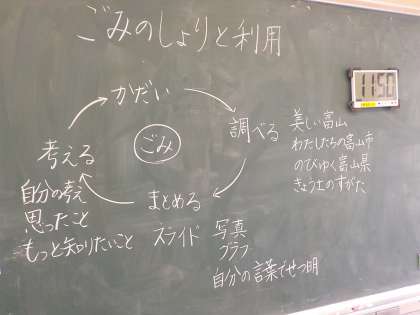 ごみのしょりと利用
11:50
かだい
調べる
美しい富山
わたしたちの富山市
のびゆく富山県
きょう土のすがた
ごみ
考える
自分の考え
思ったこと
もっと知りたいこと
まとめる
スライド
写真
グラフ
自分の言葉でせつ明